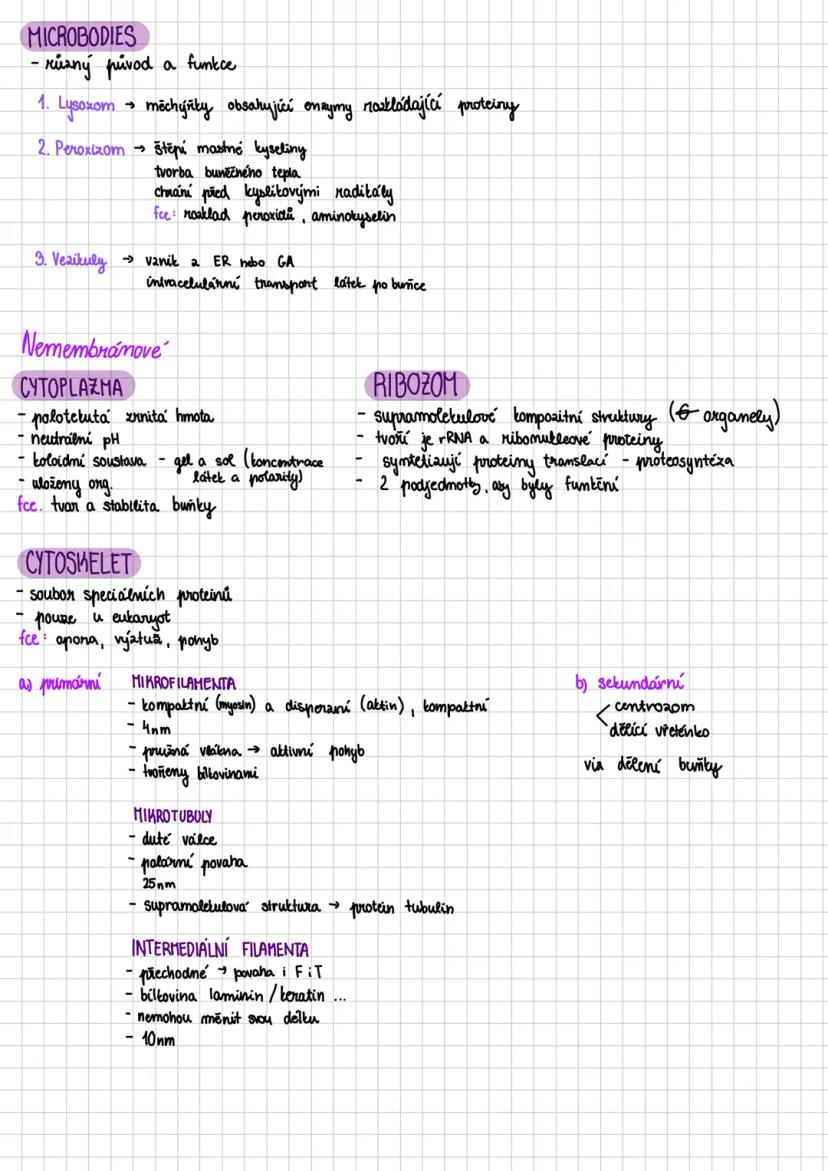 MICROBODIES
- různý původ a funkce
1. Lysozom → měchýřky obsahující enzymy rozkládající proteiny
2. Peroxizom → štěpí mastné kyseliny
tvorba buněčného tepla
chrání před kyslíkovými radikály
fce: rozklad peroxidů, aminokyselin
3. Vezikuly → vznik z ER nebo GA
intracelulární transport látek po buňce
Nemembránové
CYTOPLAZMA
- polotekutá zrnitá hmota
- neutrální pH
- koloidní soustava - gel a sol (koncentrace
látek a polarity)
- uloženy org.
fce. tvar a stabilita buňky
RIBOZOM
- supramolekulové kompozitní struktury ( organely)
- tvoří je rRNA a ribonukleové proteiny
- syntetizují proteiny translací - proteosyntéza
- 2 podjednotky, aby byly funkční
CYTOSKELET
- soubor speciálních proteinů
- pouze u eukaryot
fce: opora, výztuž, pohyb
a) primární
MIKROFILAMENTA
- kompaktní (myosin) a disperzní (aktin), kompaktní
- 4nm
- pružná vlákna → aktivní pohyb
- tvořeny bílkovinami
MIKROTUBULY
- duté válce
- polární povaha
25nm
- supramolekulová struktura → protein tubulin
INTERMEDIÁLNÍ FILAMENTA
- přechodné → povaha i F i T
- bílkovina laminin / keratin ...
- nemohou měnit svou délku
- 10nm
b) sekundární
centrozom
dělící vřeténko
viz dělení buňky